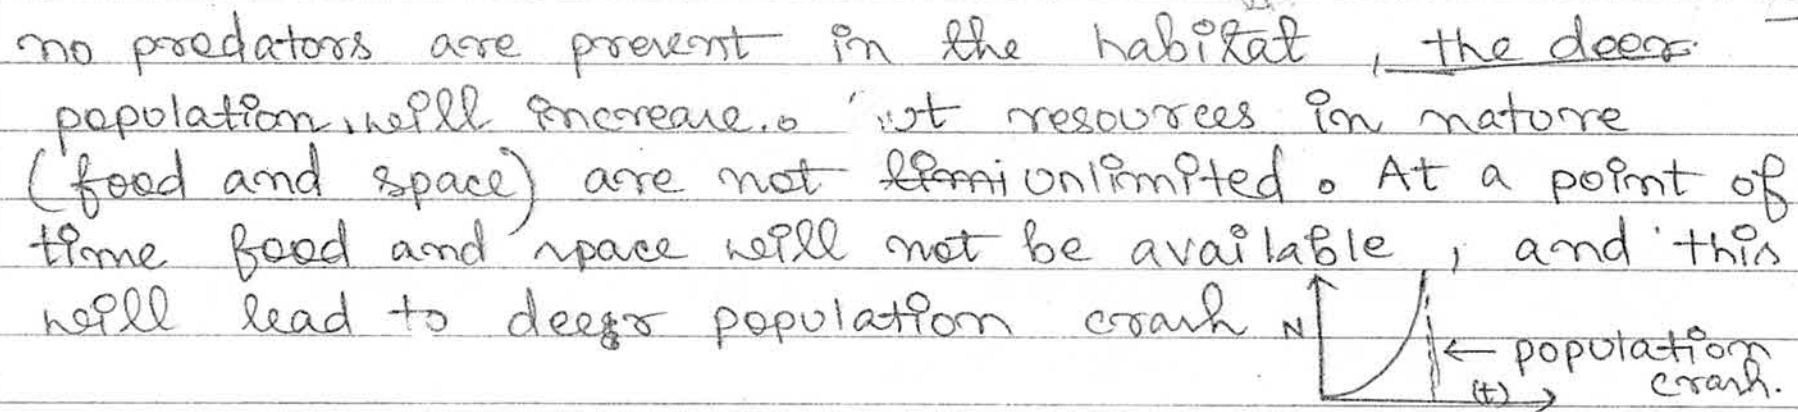 no predators are present in the habitat, the deer
population, will increase. ut resources in nature
(food and space) are not limi unlimited. At a point of
time food and space will not be available, and this
will lead to deer population crash
N
← population
crash.
(t)